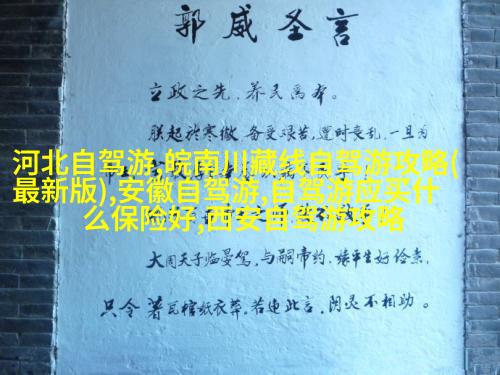 郭威圣言
立政之先,养民为本。
朕起於寒微,备受艰苦,遭时丧乱,一旦为
河北自驾游,皖南川藏线自驾游攻略(
最新版),安徽自驾游,自驾游应买什
么保险好,西安自驾游攻略
大周天子临晏驾,与嗣帝约,缘平生好俭素,
只令著瓦棺纸衣葬。若违此言,阴灵不相助。